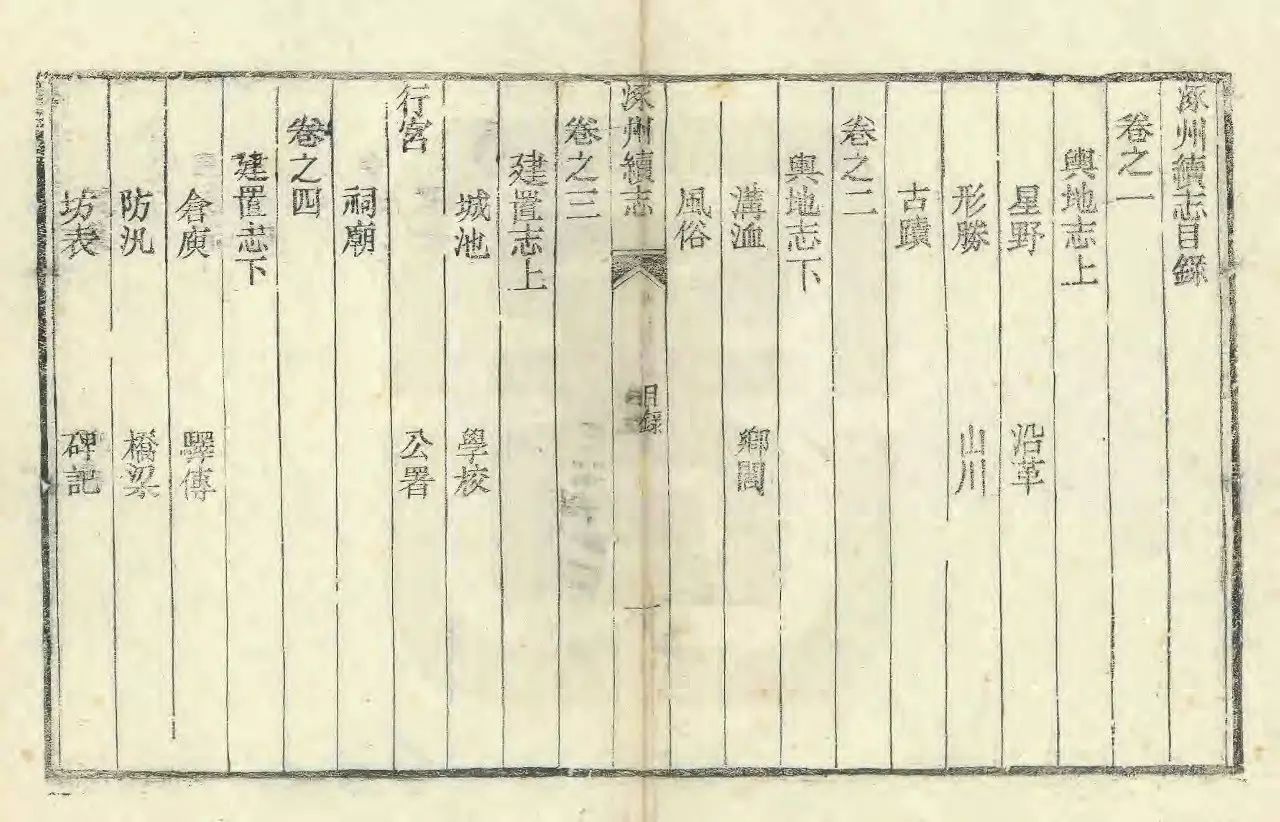 涿州續志目錄
卷之一
輿地志上
星野 沿革
形勝 山川
古蹟
卷之二
輿地志下
溝洫 鄉閭
風俗
涿州續志 目錄 一
卷之三
建置志上
城池 學校
行宮 公署
祠廟
卷之四
建置志下
倉庾 驛傳
防汛 橋梁
坊表 碑記